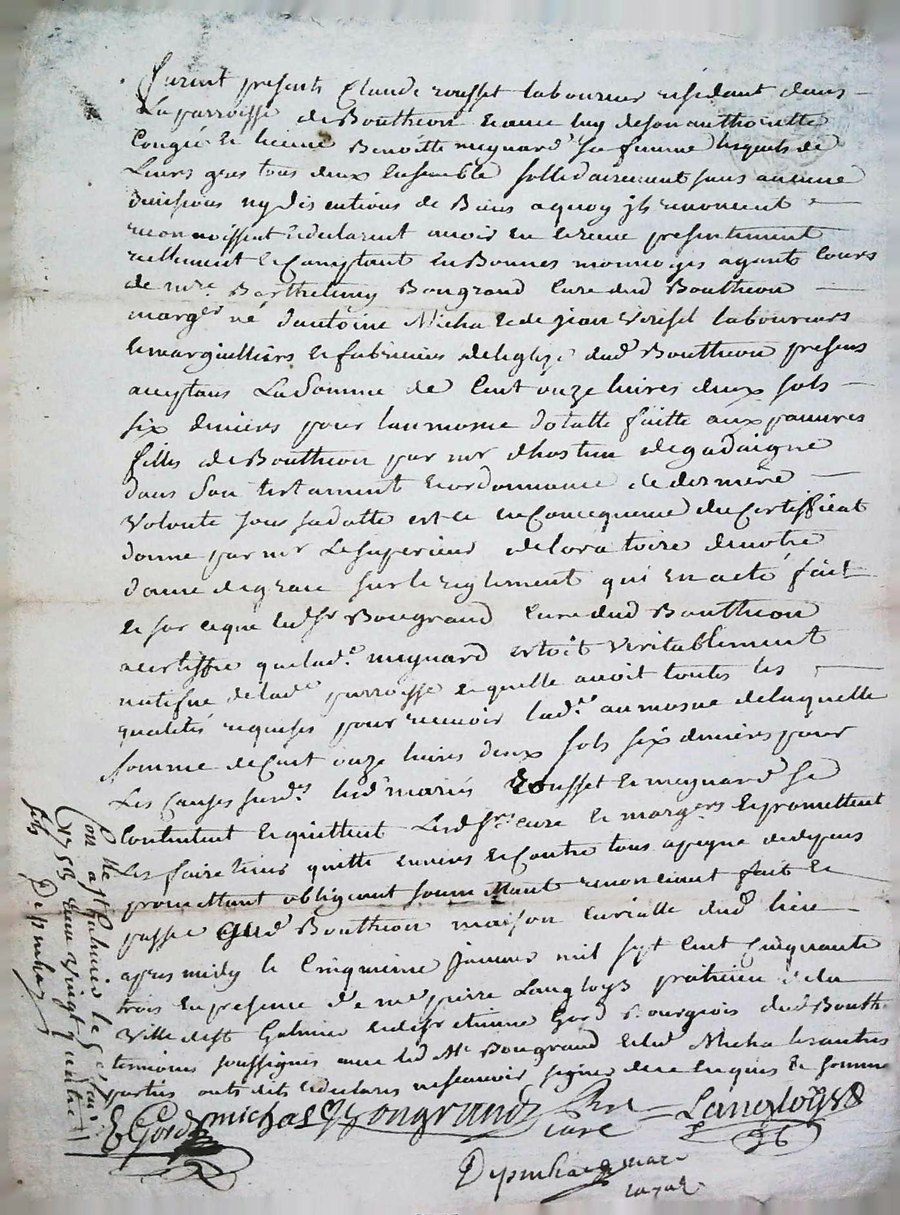 furent presents Claude rousset laboureur residant dans
La parroisse de Boutheon lequel de son authoritté
Congié et licence Benoitte meynard sa femme lesquels de
Leurs gres tous deux Ensemble sollidairement sans aucune
divisions ny discutions de Biens a quoy jls renoncent
reconnoissent et declarent avoir eu et receu presentement
reellement et Comptant en Bonnes monnoyes ayants Cours
de mre Barthelemy Bougrand Curé dud Bouthéon
d'antoine Micha et de jean laboureurs
et marguilliers et fabriciens de leglize dud Bouthéon presens
aceptans La Somme de Cent onze livres deux sols
six deniers pour laumosne dotalle faitte aux pauvres
filles de Bouthéon par mr dhostun de gadaigne
dans son testament et ordonnance de derniere
volonté sous sa datte et ce en Concequence du Certifficat
donne par mr Le superieur de loratoire de notre
dame de grace sur le reglement qui en a eté fait
et sur ce que led sr Bougrand Curé dud Bouthéon
a certiffié que lad. meynard estoit veritablement
natifve de lad parroisse et quelle avoit toutes les
qualités requises pour recevoir lad. aumosne de laquelle
somme de Cent onze livres deux sols six deniers pour
Les Causes susds lesd mariés Rousset et meynard se
Contentent et quittent Lesd srs curé et margers et promettent
Les faire tenir quitte envers et Contre tous a peyne de depens
promettant obligeant soumettant renonciant fait et
passé aud Bouthéon maison Curialle dud lieu
apres midy le Cinquieme janvier mil sept Cent Cinquante
trois En presence de me pierre Langloys praticien de la
ville de st Galmier et de sr etienne Gord Bourgeois dud Bouth.
temoins soussignés avec led Mr Bougrand et led Micha les autres
parties onts dit et declarés ne scavoir signer de ce enquis et sommé
E Gord micha Bougrand Curé Langloys
Conllé a st Galmier le
1753 Reçu vingt quatre
sols